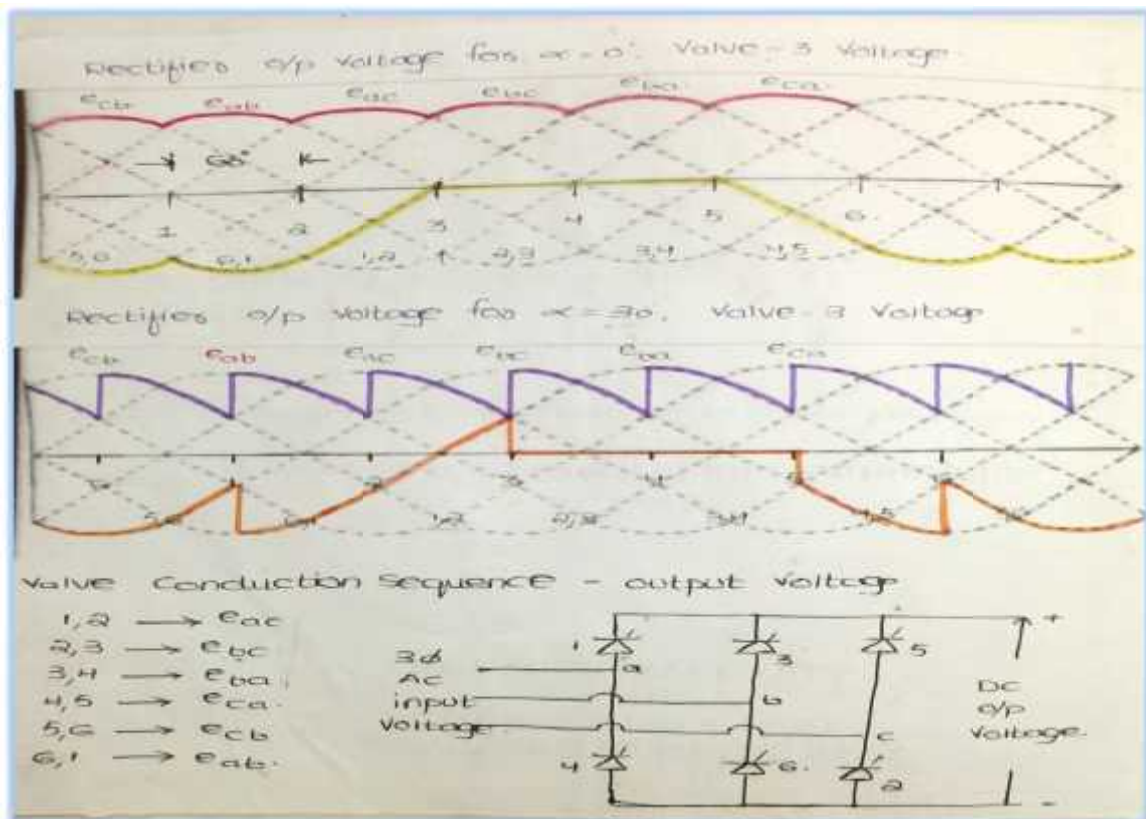 Rectifier o/p voltage for α = 0°. Valve-3 Voltage.
e_cb e_ab e_ac e_bc e_ba. e_ca.
60°
1 2 3 4 5 6.
5,6 6,1 1,2 2,3 3,4 4,5
Rectifier o/p voltage for α = 30, Valve-3 Voltage
e_cb e_ab e_ac e_bc e_ba e_ca
2 3 4
1,2 2,3 4,5
Valve Conduction Sequence - output voltage
1,2 → e_ac
2,3 → e_bc
3,4 → e_ba.
4,5 → e_ca.
5,6 → e_cb
6,1 → e_ab.
3ϕ
AC
input
voltage
1 3 5
a
b
c
4 6. 2
+
DC
o/p
voltage.
-